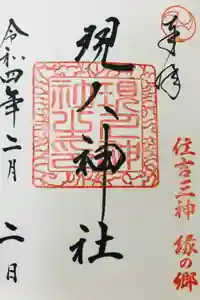 奉拝
住吉三神 縁の郷
現人神社
令和四年二月二日